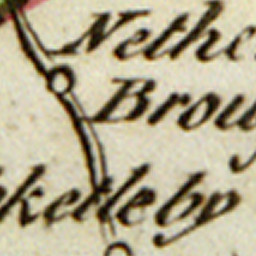 Nethe
Broug
ketleby